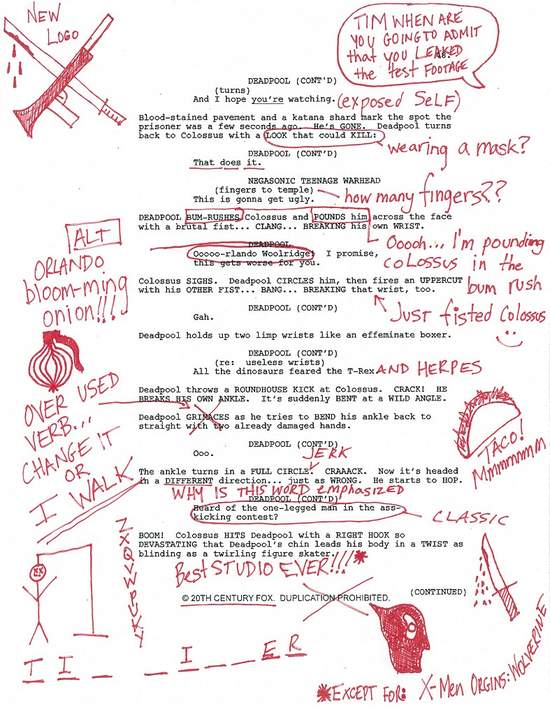 NEW
LOGO
TIM WHEN ARE
YOU GOING TO ADMIT
that you LEAKED
the test FOOTAGE
DEADPOOL (CONT'D)
(turns)
And I hope you're watching.
(exposed SELF)
Blood-stained pavement and a katana shard mark the spot the
prisoner was a few seconds ago. He's GONE. Deadpool turns
back to Colossus with a LOOK that could KILL:
wearing a mask?
DEADPOOL (CONT'D)
That does it.
NEGASONIC TEENAGE WARHEAD
(fingers to temple)
This is gonna get ugly.
how many fingers??
DEADPOOL BUM-RUSHES Colossus and POUNDS him across the face
with a brutal fist... CLANG... BREAKING his own WRIST.
Ooooh... I'm pounding
COLOSSUS in the
bum rush
ALT
ORLANDO
bloom-ming
onion!!!!
DEADPOOL
Ooooo-rlando Woolridge! I promise,
this gets worse for you.
Colossus SIGHS. Deadpool CIRCLES him, then fires an UPPERCUT
with his OTHER FIST... BANG... BREAKING that wrist, too.
Just fisted Colossus
DEADPOOL (CONT'D)
Gah.
Deadpool holds up two limp wrists like an effeminate boxer.
DEADPOOL (CONT'D)
(re: useless wrists)
All the dinosaurs feared the T-Rex
AND HERPES
Deadpool throws a ROUNDHOUSE KICK at Colossus. CRACK! HE
BREAKS HIS OWN ANKLE. It's suddenly BENT at a WILD ANGLE.
OVER USED
VERB...
CHANGE IT
OR
I WALK
Deadpool GRIMACES as he tries to BEND his ankle back to
straight with two already damaged hands.
TACO!
Mmmmmmm
DEADPOOL (CONT'D)
Ooo.
JERK
The ankle turns in a FULL CIRCLE. CRAAACK. Now it's headed
in a DIFFERENT direction... just as WRONG. He starts to HOP.
WHY IS THIS WORD emphasized
DEADPOOL (CONT'D)
Heard of the one-legged man in the ass-
kicking contest?
CLASSIC
BOOM! Colossus HITS Deadpool with a RIGHT HOOK so
DEVASTATING that Deadpool's chin leads his body in a TWIST as
blinding as a twirling figure skater.
Best STUDIO EVER!!!*
© 20TH CENTURY FOX. DUPLICATION PROHIBITED.
(CONTINUED)
*EXCEPT FOR: X-Men ORGINS: WOLVERINE